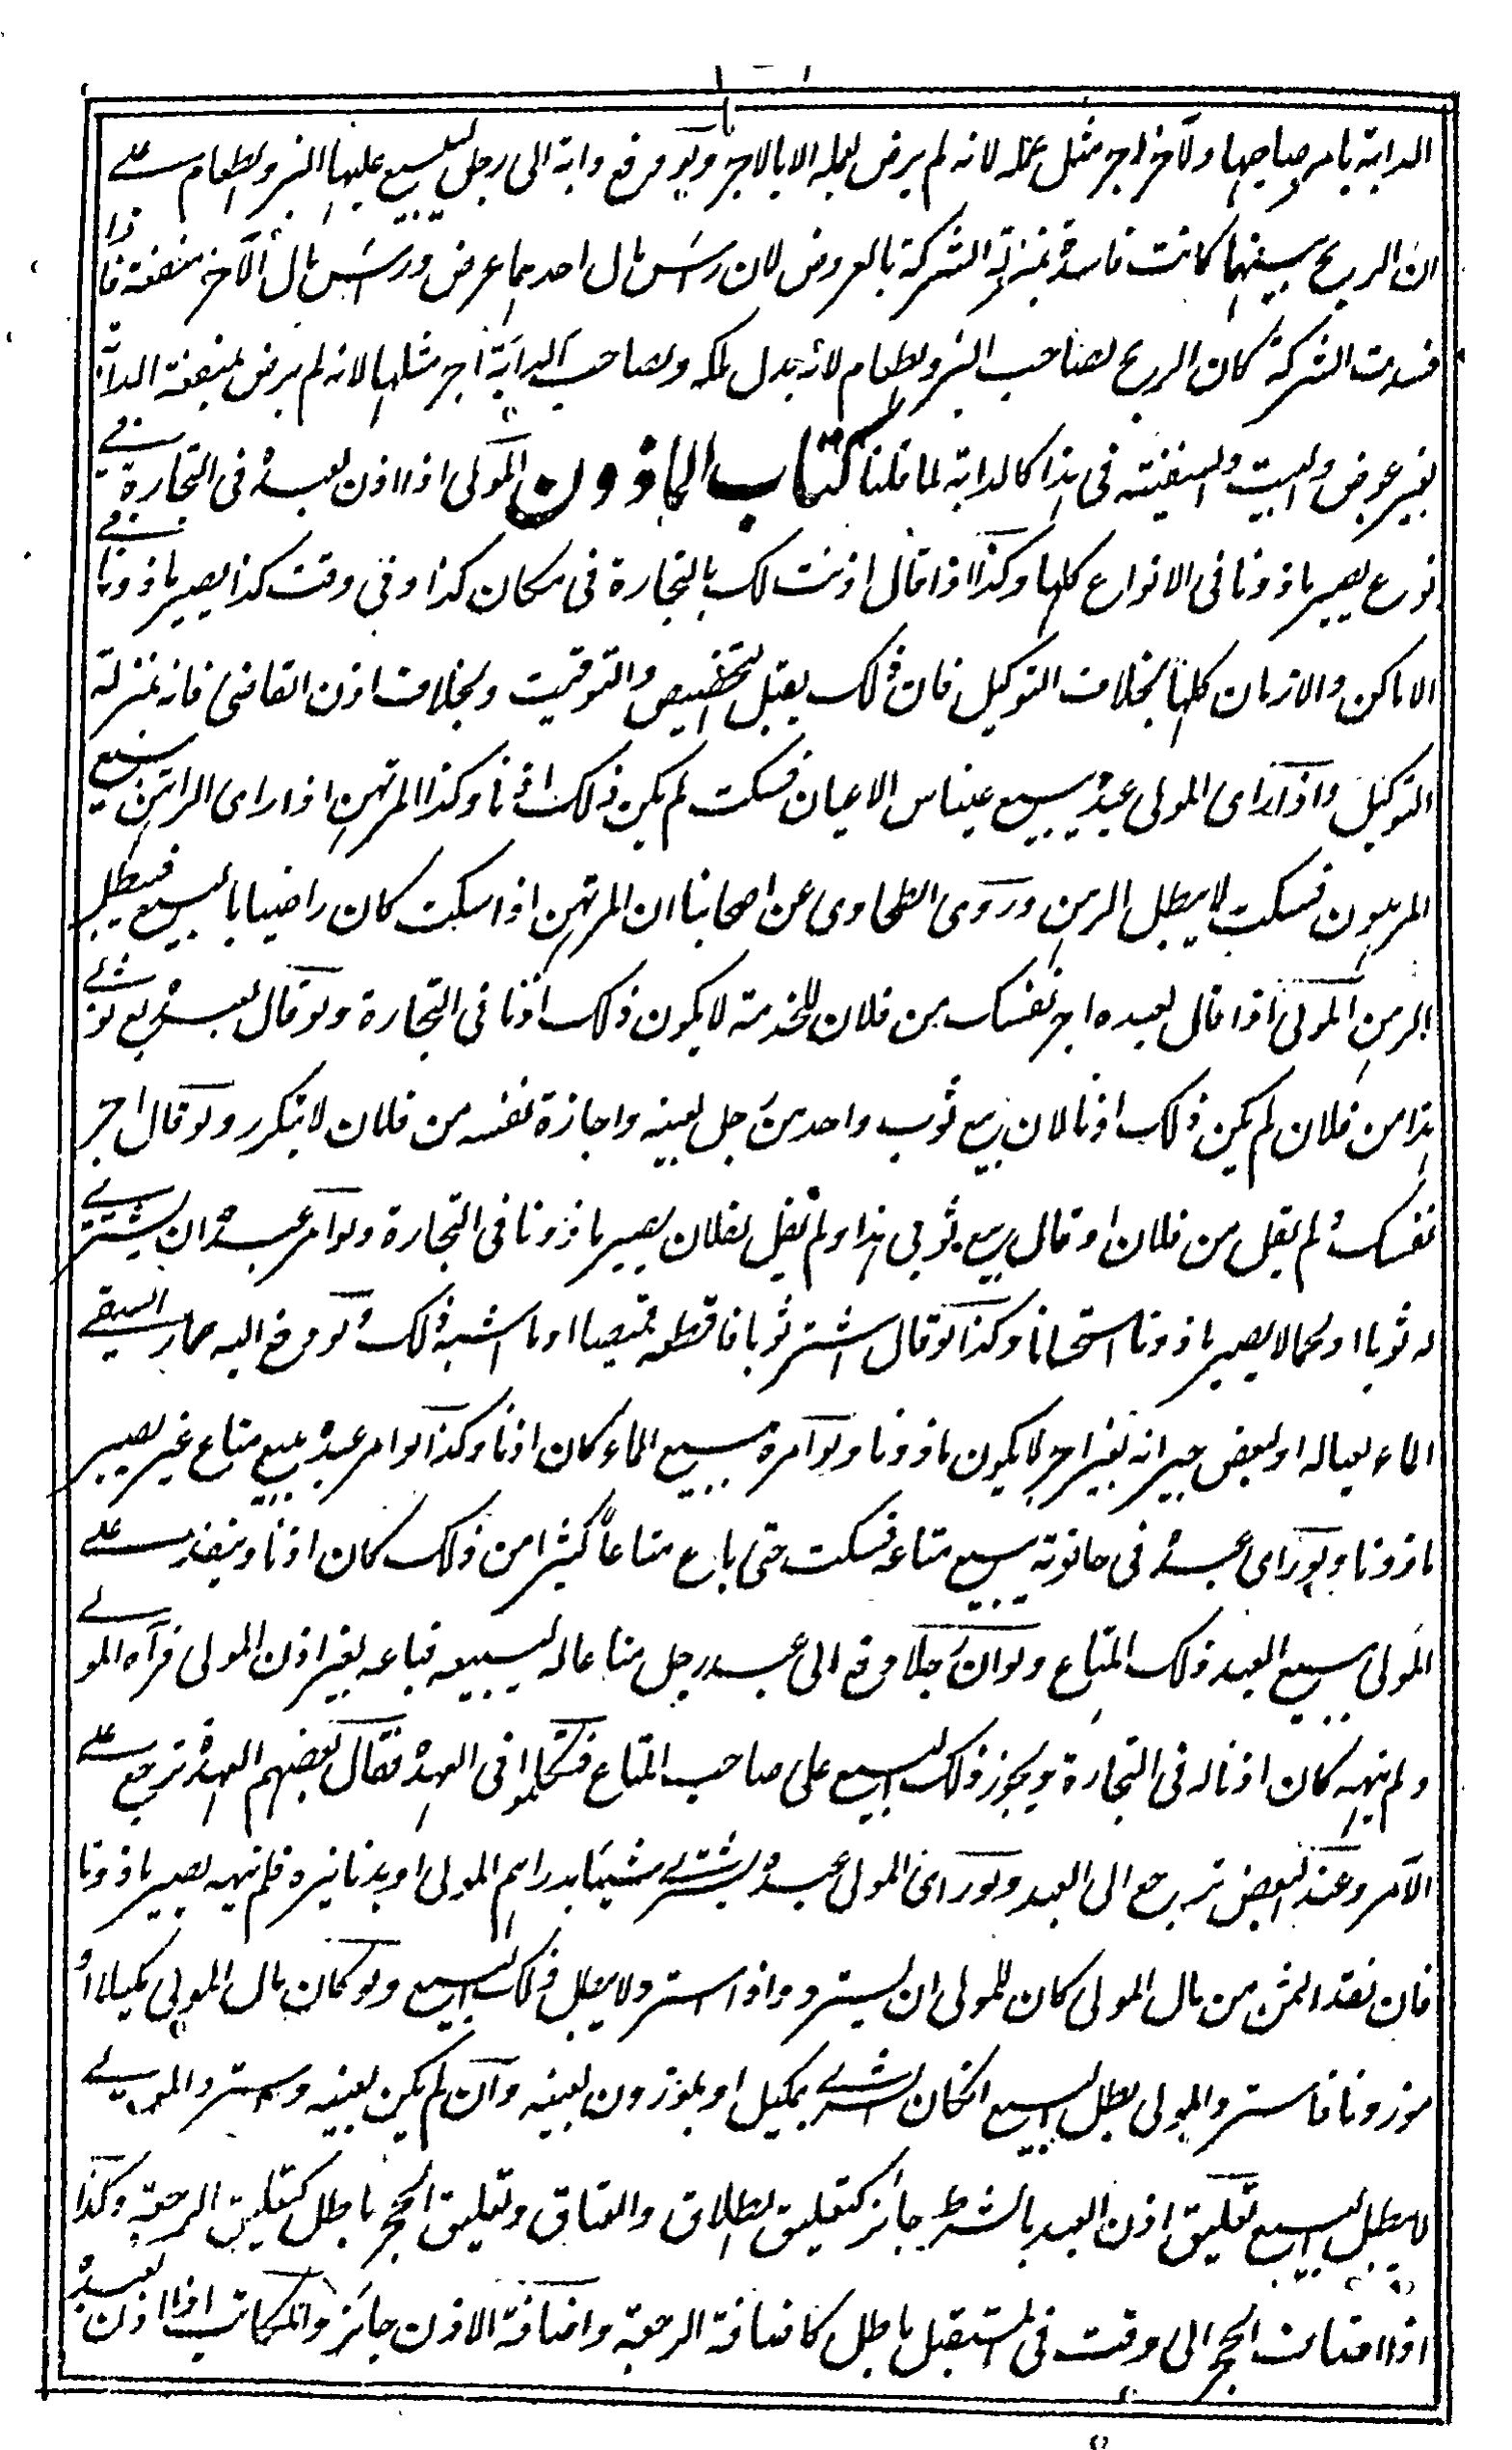 الدابة بامر صاحبها ولآخر اجر مثل عمله لانه لم يرض بعمله الا بالاجر ولو دفع دابة الى رجل ليبيع عليها البز والطعام على
ان الربح بينهما كانت فاسدة بمنزلة الشركة بالعروض لان رأس مال احدهما عرض ورأس مال الآخر منفعة فاذا
فسدت الشركة كان الربح لصاحب البز والطعام لانه بدل ملكه ولصاحب الدابة اجر مثلها لانه لم يرض بمنفعة الدابة
بغير عوض والبيت والسفينة فى هذا كالدابة لما قلنا كتاب الماذون المولى اذا اذن لعبده فى التجارة في
نوع يصير ماذونا فى الانواع كلها وكذا اذا قال اذنت لك بالتجارة فى مكان كذا وفى وقت كذا يصير ماذونا في
الاماكن والازمان كلها بخلاف التوكيل فان ذلك يقبل التخصيص والتوقيت وبخلاف اذن القاضى فانه بمنزلة
التوكيل واذا راى المولى عبده يبيع عينا من الاعيان فسكت لم يكن ذلك اذنا وكذا المرتهن اذا راى الراهن يبيع
المرهون فسكت لا يبطل الرهن وروى الطحاوى عن اصحابنا ان المرتهن اذا سكت كان راضيا بالبيع فيبطل
الرهن المولى اذا قال لعبده اجر نفسك من فلان للخدمة لا يكون ذلك اذنا فى التجارة ولو قال لعبده بع ثوبي
هذا من فلان لم يكن ذلك اذنا لان بيع ثوب واحد من رجل بعينه واجازة نفسه من فلان لا يتكرر ولو قال اجر
نفسك ولم يقل من فلان او قال بع ثوبى هذا ولم يقل لفلان يصير ماذونا فى التجارة ولو امر عبده ان يشتري
له ثوبا او لحما لا يصير ماذونا استحسانا وكذا لو قال اشتر ثوبا فاقطعه قميصا او ما اشبه ذلك ولو دفع اليه حمارا ليسقي
الماء لعياله او لبعض جيرانه بغير اجر لا يكون ماذونا ولو امره ببيع الماء كان اذنا وكذا لو امر عبده ببيع متاع غيره يصير
ماذونا ولو راى عبده فى حانوته يبيع متاعه فسكت حتى باع متاعاً كثيرا من ذلك كان اذنا وينفذ على
المولى بيع العبد ذلك المتاع ولو ان رجلا دفع الى عبد رجل متاعا له ليبيعه فباعه بغير اذن المولى فرآه المولى
ولم ينهه كان اذنا له فى التجارة ويجوز ذلك البيع على صاحب المتاع فتكلموا فى العهدة فقال بعضهم العهدة ترجع على
الآمر وعند البعض ترجع الى العبد ولو راى المولى عبده يشتري شيئا بدراهم المولى او بدنانيره فلم ينهه يصير ماذونا
فان نقد الثمن من مال المولى كان للمولى ان يسترد واذا استرد لا يبطل ذلك البيع ولو كان مال المولى مكيلا او
موزونا فاسترد المولى بطل البيع ان كان الشراء بمكيل او بموزون بعينه وان لم يكن بعينه واسترد المولى
لا يبطل البيع تعليق اذن العبد بالشرط جائز كتعليق الطلاق والعتاق وتعليق الحجر باطل كتعليق الرجعة وكذا
اذا اضاف الحجر الى وقت فى المستقبل باطل كاضافة الرجعة واضافة الاذن جائز والمكاتب اذا اذن لعبده